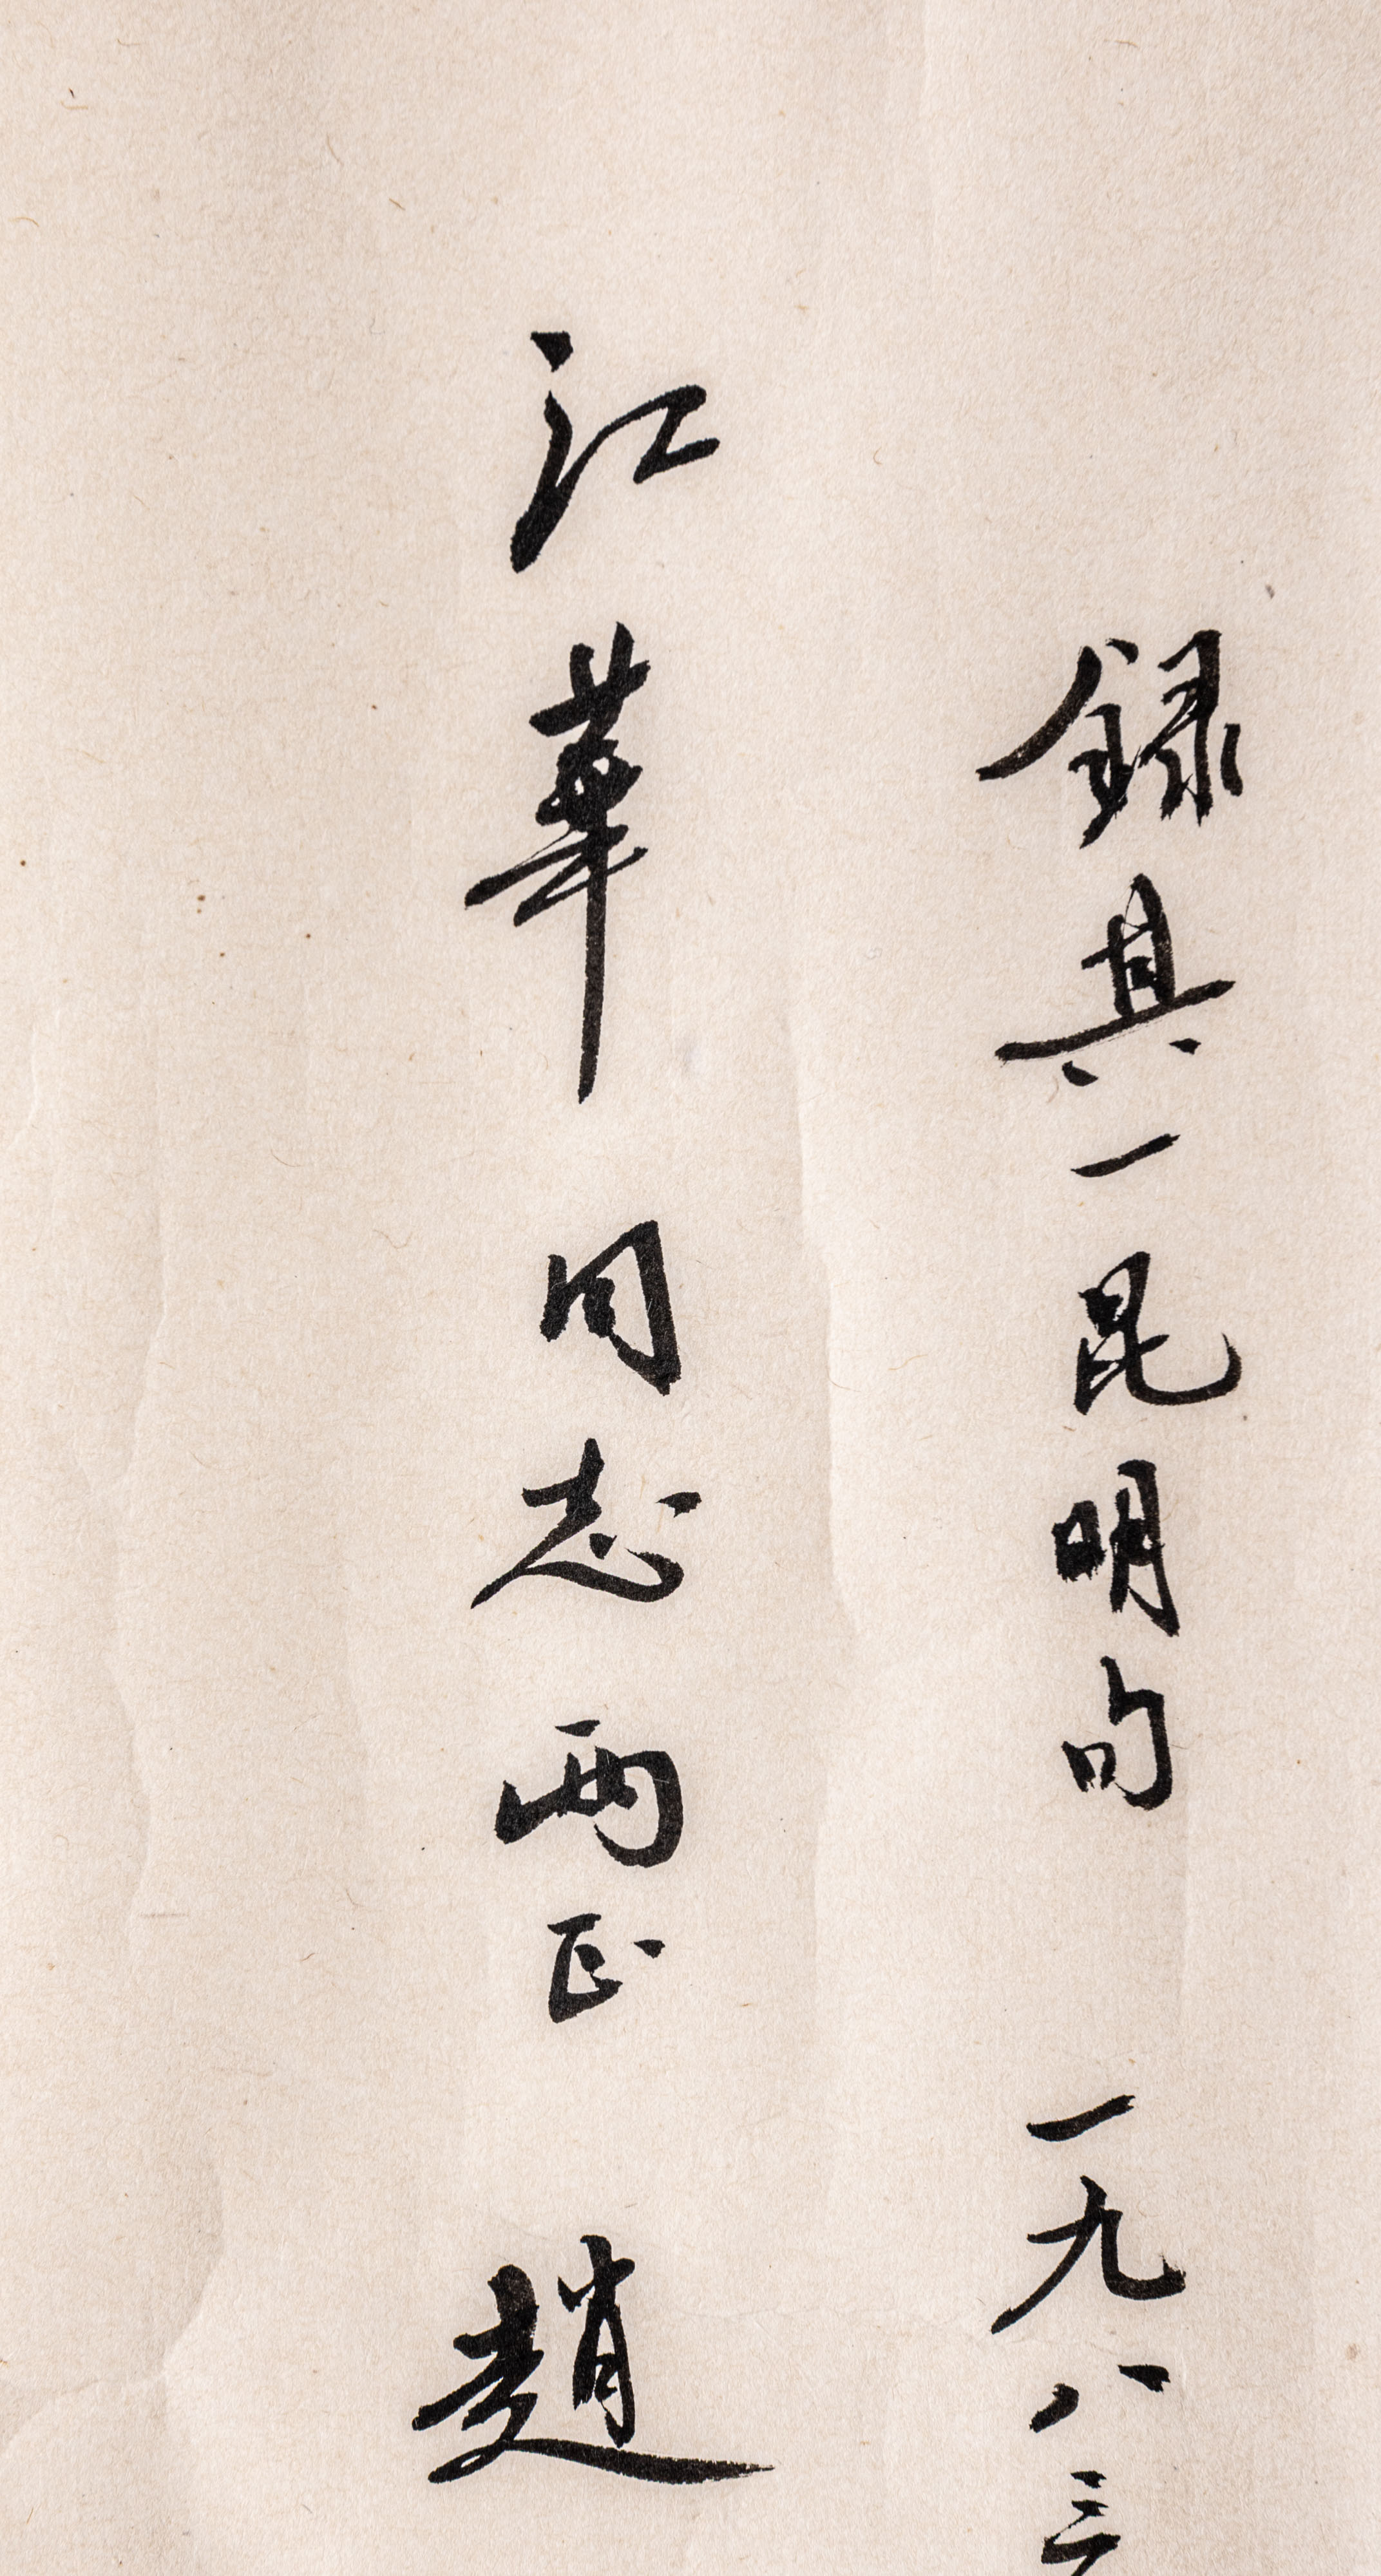 録其一昆明句 一九八三
江華同志两正 趙